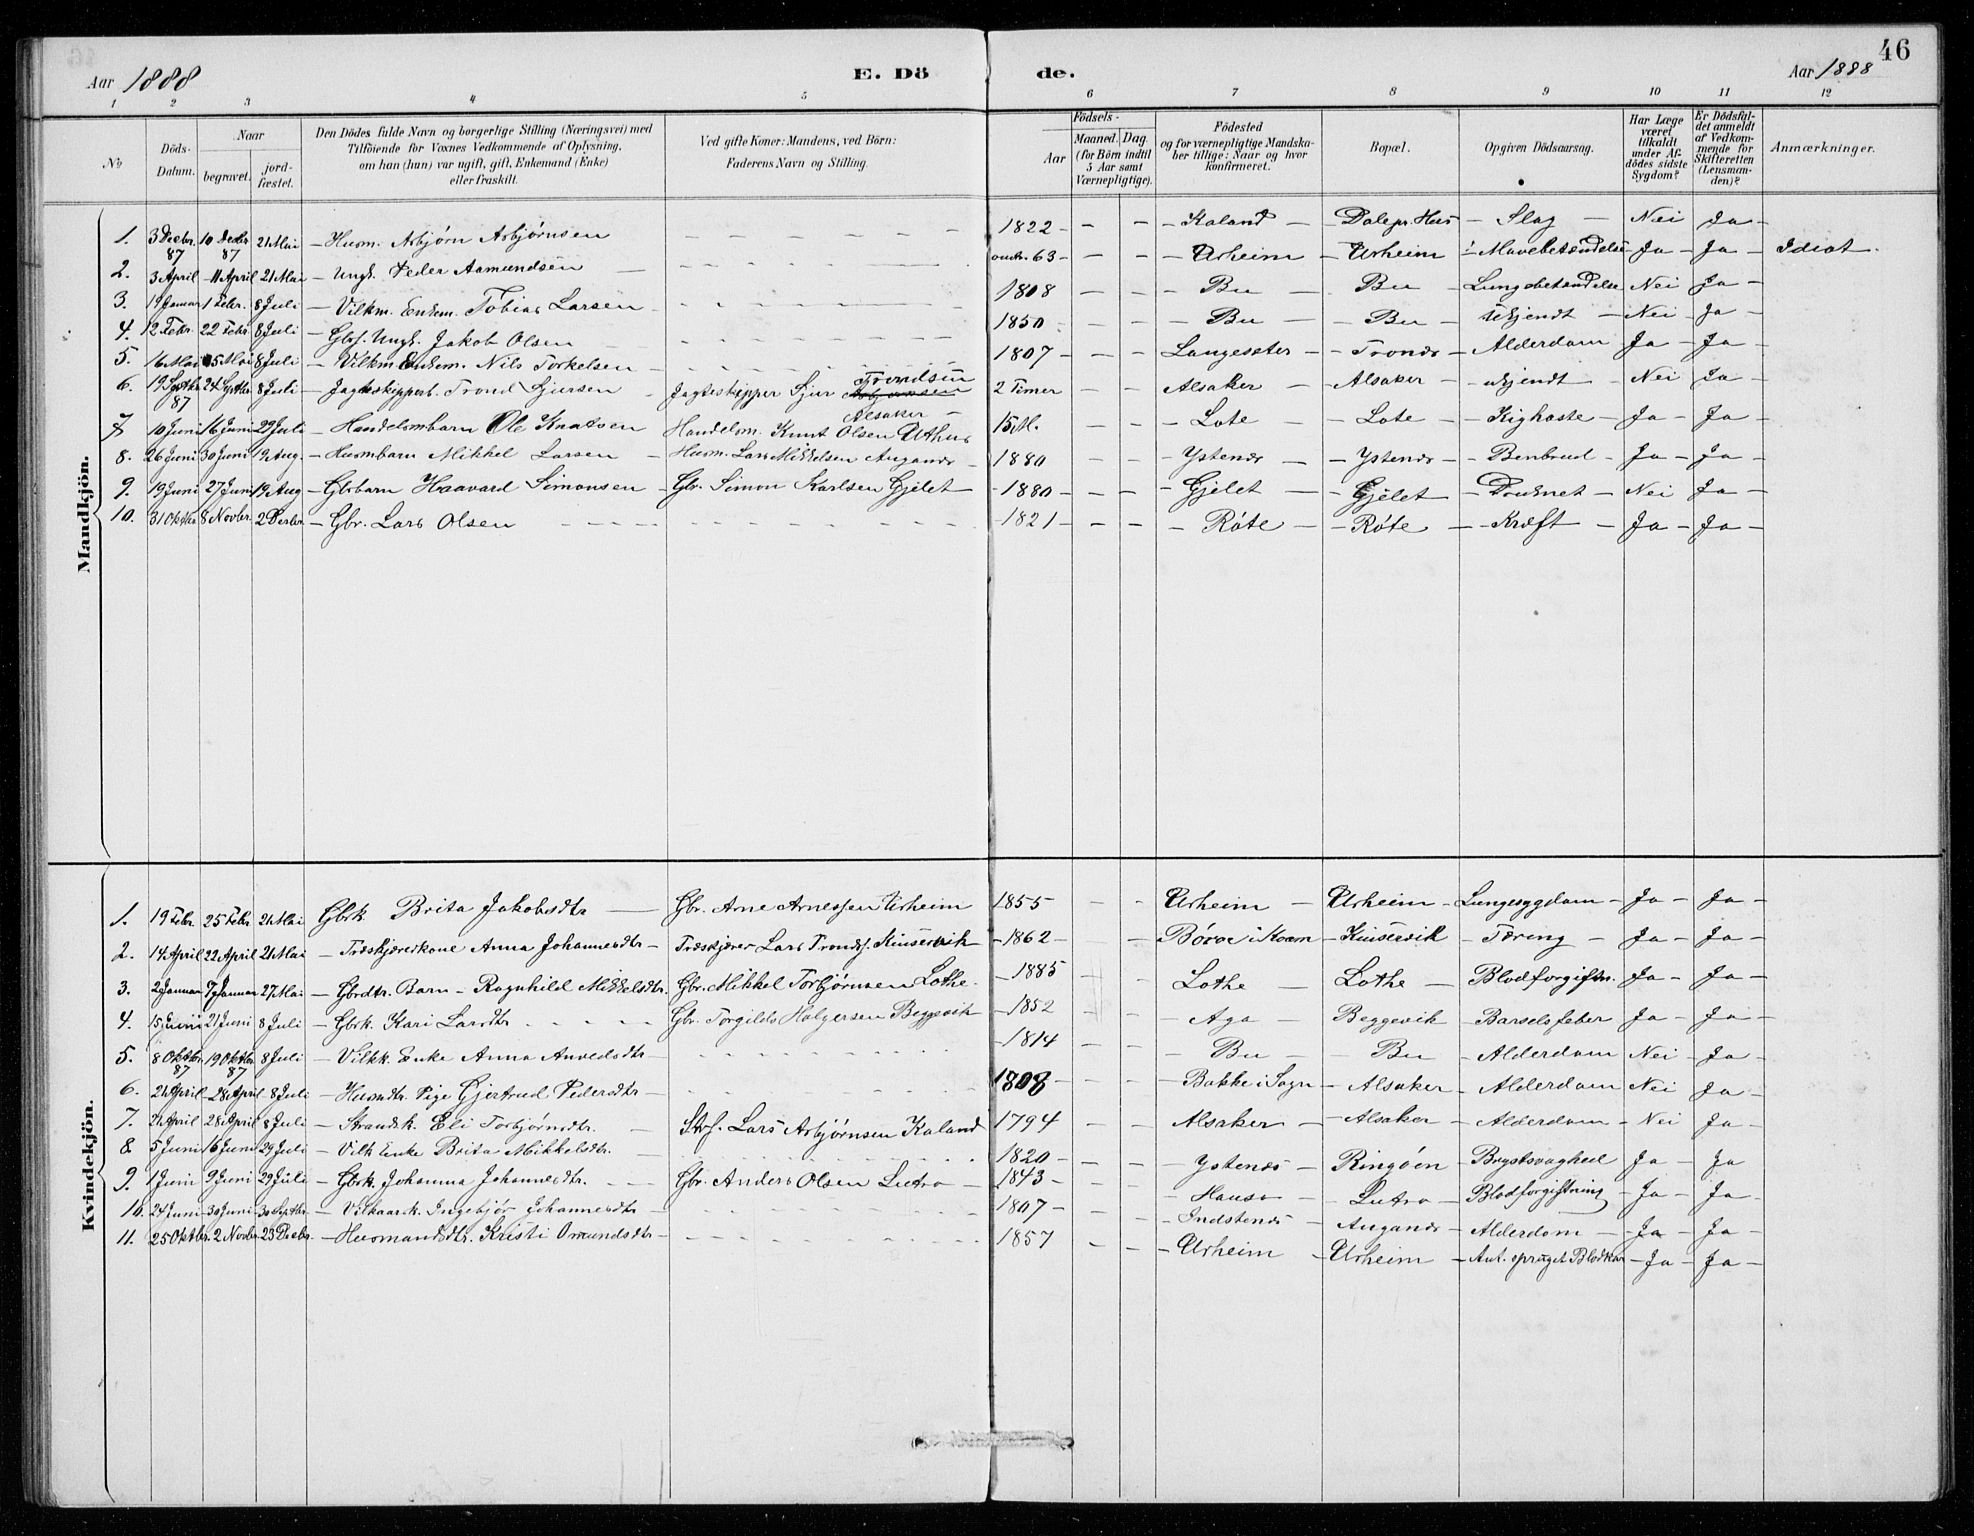 46
Aar 1888 E. Dö de. Aar 1888
1 2 3 4 5 6 7 8 9 10 11 12
No Döds-Datum. Naar begravet. jordfæstet. Den Dödes fulde Navn og borgerlige Stilling (Næringsvei) med Tilföiende for Voxnes Vedkommende af Oplysning, om han (hun) var ugift, gift, Enkemand (Enke) eller fraskilt. Ved gifte Koner: Mandens, ved Börn: Faderens Navn og Stilling. Födsels- Aar Maaned. Dag. (for Börn indtil 5 Aar samt Værnepligtige). Födested og for værnepligtige Mandskaber tillige: Naar og hvor konfirmeret. Bopæl. Opgiven Dödsaarsag. Har Læge været tilkaldt under Afdödes sidste Sygdom? Er Dödsfaldet anmeldt af Vedkommende for Skifteretten (Lensmanden)? Anmærkninger.
Mandkjön.
1. 3 Decbr. 87 10 Decbr 87 21 Mai – Husm. Asbjørn Asbjørnsen – – – 1822 – – – Kaland – Dale pr. Hus – Slag – Nei Ja –
2. 3 April 11 April 21 Mai – Ungk. Peder Aamundsen – – – omtr. 63 – – – Urheim – Urheim – Mavebetændelse – Ja – Ja – Idiot.
3. 19 Januar 1 Febr. 8 Juli – Vilkm. Enkem. Tobias Larsen – – – 1808 – – – Bu – Bu – Lungebetændelse Nei Ja –
4. 12 Febr. 22 Febr. 8 Juli – Gbrs. Ungk. Jakob Olsen – – – 1850 – – – Bu – Bu – Ukjendt – Nei – Ja –
5. 16 Mai 25 Mai 8 Juli – Vilkm. Enkem. Nils Torkelsen – – – 1807 – – – Langeseter – Tronæs – Alderdom Ja – Ja –
6. 19 Septbr. 87 24 Septbr 8 Juli – Jagteskipperb. Trond Sjursen – Jagteskipper Sjur Trondsen Alsaker – 2 Timer – – Alsaker – Alsaker – ukjendt – Nei Ja –
7 10 Juni 16 Juni 29 Juli – Handelsmbarn Ole Knutsen Handelsm. Knut Olsen Uthus 15 M. – – – Lote – Lote – Kighoste – Ja – Ja –
8. 26 Juni 30 Juni 19 Aug. – Husmbarn Mikkel Larsen – Husm. Lars Mikkelsen Auganæs – 1880 – – – Ystenæs – Ystenæs – Benbrud – Ja – Ja –
9. 19 Juni 27 Juni 19 Aug – Gbrbarn Haavard Simonsen – Gbr. Simon Karlsen Gjelet – 1880 – – – Gjelet – Gjelet – Druknet – Nei Ja –
10. 31 Oktbr 8 Novbr. 2 Decbr. – Gbr. Lars Olsen – – – 1821 – – – Røte – Røte – Kræft – Ja – Ja –
Kvindekjön.
1. 19 Febr. 25 Febr. 21 Mai Gbrk Brita Jakobsdtr – Gbr. Arne Arnessen Urheim 1855 – – – Urheim – Urheim – Lungesygdom – Ja – Ja –
2. 14 April 22 April 21 Mai – Træskjærerkone Anna Johannesdtr – Træskjærer Lars Trondss. Kinservik – 1862 – – Børve i Kvam – Kinservik – Tæring – Ja – Ja –
3. 2 Januar 7 Januar 27 Mai – Gbrdtr. Barn – Ragnhild Mikkelsdtr. Gbr. Mikkel Torbjørnsen Lothe. – 1885 – – Lothe – Lothe – Blodforgiftn. Ja – Ja –
4. 15 Juni 21 Juni 8 Juli – Gbrk. Kari Larsdtr – – Gbr. Torgils Holgersen Beggevik – 1852 – – – Aga – Beggevik – Barselsfeber Ja – Ja –
5. 8 Oktbr. 87 19 Oktbr. 87 8 Juli – Vilkk. Enke Anna Amundsdtr – – – 1814 – – – Bu – Bu – Alderdom Nei – Ja –
6. 21 April 28 April 8 Juli – Husmdtr. Pige Gjertrud Pedersdtr – – – 1808 – – – Bakke i Sogn – Alsaker – Alderdom Nei – Ja –
7. 21 April 28 April 8 Juli – Strandsk. Eli Torbjørnsdtr. – Strs. Lars Asbjørnsen Kaland 1794 – – – Alsaker – Alsaker – Alderdom – Nei Ja –
8 5 Juni 16 Juni 29 Juli – Vilk Enke Brita Mikkelsdtr. – – – 1820 – – – Ystenæs – Ringøen – Brystsvaghed Ja – Ja
9. 1 Juni 9 Juni 29 Juli – Gbrk. Johanna Johannesdtr. – – Gbr. Anders Olsen Lutro – 1843 – – – Hauso – Lutro – Blodforgiftning – Ja – Ja –
10. 24 Juni 30 Juni 30 Septbr. – Vilkaark. Ingebjør Johannesdtr – – – 1807 – – – Indstenæs – Auganæs – Alderdom – Ja – Ja –
11. 25 Oktbr. 2 Novbr. 23 Decbr. – Husmandsdtr. Kristi Omundsdtr – – – 1857 – – – Urheim – Urheim – Ant. sprunget Blodkar – Ja – Ja –